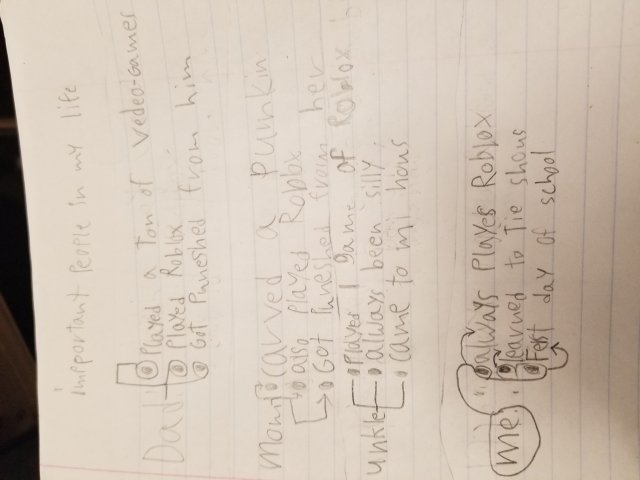 important People in my life
Dad:
• Played a Ton of vedeo-gamer
• Played Roblox
• Got Puneshed from him
Mom: • carved a plumkin
• also played Roblox
• Got Puneshed from her
unkle • Played 1 game of Roblox
• always been silly
• came to mi hous
me: • always Played Roblox
• learned to Tie shous
• Ferst day of school